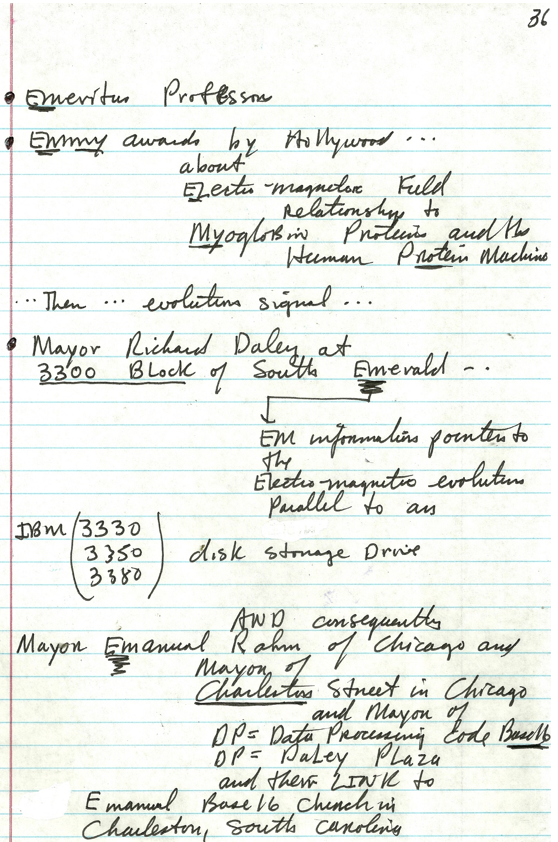 36
• Emeritus Professor
• Emmy awards by Hollywood ...
about
Electro-magnetic Field
relationship to
Myoglobin Proteins and the
Human Protein Machine
... Then ... evolution signal ...
• Mayor Richard Daley at
3300 Block of South Emerald ...
EM information pointers to
the
Electro-magnetic evolution
Parallel to an
IBM (3330
3350
3380) disk storage Drive
AND consequently
Mayor Emanual Rahm of Chicago and
Mayor of
Charleston Street in Chicago
and Mayor of
DP = Data Processing Code Base 16
DP = Daley Plaza
and their LINK to
Emanual Base 16 Church in
Charleston, South Carolina